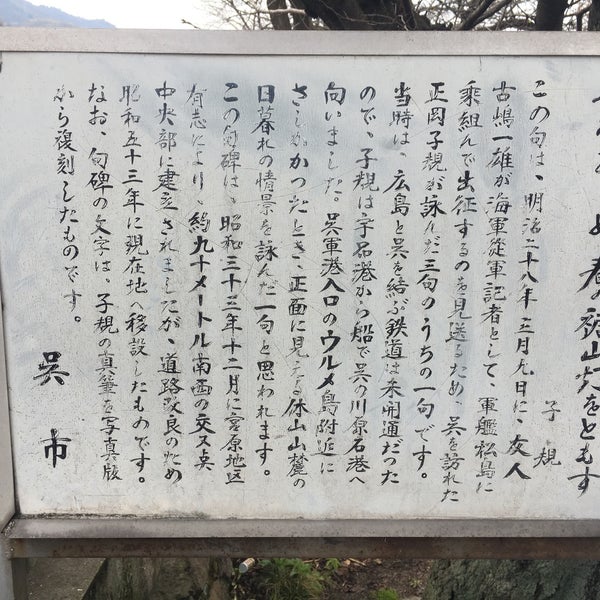 春の裾山灯をともす
子規
この句は、明治二十八年三月九日に、友人
古嶋一雄が海軍従軍記者として、軍艦松島に
乗組んで出征するのを見送るため、呉を訪れた
正岡子規が詠んだ三句のうちの一句です。
当時は、広島と呉を結ぶ鉄道は未開通だった
ので、子規は宇品港から船で呉の川原石港へ
向いました。呉軍港入口のウルメ島附近に
さしかかったとき、正面に見える休山山麓の
日暮れの情景を詠んだ一句と思われます。
この句碑は、昭和三十三年十二月に宮原地区
有志により、約九十メートル南西の交叉点
中央部に建立されましたが、道路改良のため
昭和五十三年に現在地へ移設したものです。
なお、句碑の文字は、子規の真筆を写真版
から復刻したものです。
呉市